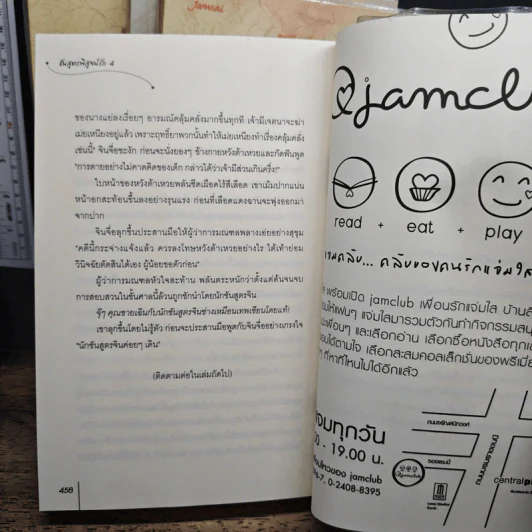 ชันสูตรพิสูจน์รัก 4
ของนางแย่ลงเรื่อยๆ อารมณ์คลุ้มคลั่งมากขึ้นทุกที เจ้ามีเจตนาจะฆ่า
เม่ยเหนียงอยู่แล้ว เพราะฤทธิ์ยาพวกนั้นทำให้เม่ยเหนียงทำเรื่องคลุ้มคลั่ง
เช่นนี้" จินจื่อชะงัก ก่อนจะนั่งยองๆ ข้างกายหวังต้าเหวยและกัดฟันพูด
"การตายอย่างไม่คาดคิดของเด็ก กล่าวได้ว่าเจ้ามีส่วนเกินครึ่ง!"
ใบหน้าของหวังต้าเหวยพลันซีดเผือดไร้สีเลือด เขาเม้มปากแน่น
หน้าอกสะท้อนขึ้นลงอย่างรุนแรง ก่อนที่เลือดแดงฉานจะพุ่งออกมา
จากปาก
จินจื่อลุกขึ้นประสานมือให้ผู้ว่าการมณฑลพลางเอ่ยอย่างสุขุม
"คดีนี้กระจ่างแจ้งแล้ว ควรลงโทษหวังต้าเหวยอย่างไร ใต้เท้าย่อม
วินิจฉัยตัดสินได้เอง ผู้น้อยขอตัวก่อน"
ผู้ว่าการมณฑลหัวใจสะท้าน พลันตระหนักว่าตั้งแต่ต้นจนจบ
การสอบสวนในชั้นศาลนี้ล้วนถูกชักนำโดยนักชันสูตรจิน
จุ๊ๆ คุณชายเฉินกับนักชันสูตรจินช่างเหมือนเทพเซียนโดยแท้!
เขาลุกขึ้นโดยไม่รู้ตัว ก่อนจะประสานมือพูดกับจินจื่ออย่างเกรงใจ
"นักชันสูตรจินค่อยๆ เดิน"
(ติดตามต่อในเล่มถัดไป)
458
jamclu
read + eat + play
แจ่มคลับ... คลับของคนรักแจ่มใส
พร้อมเปิด jamclub เพื่อนรักแจ่มใส
ให้แฟนๆ แจ่มใสมารวมตัวกันทำกิจกรรม
เพื่อนๆ และเลือกอ่าน เลือกซื้อหนังสือทุก
ได้ตามใจ เลือกสะสมคอลเล็กชั่นของพรีเมี่
ที่หาที่ไหนไม่ได้อีกแล้ว
ทุกวัน
- 19.00 น.
ของ jamclub
0-2408-8395
jamclub
central